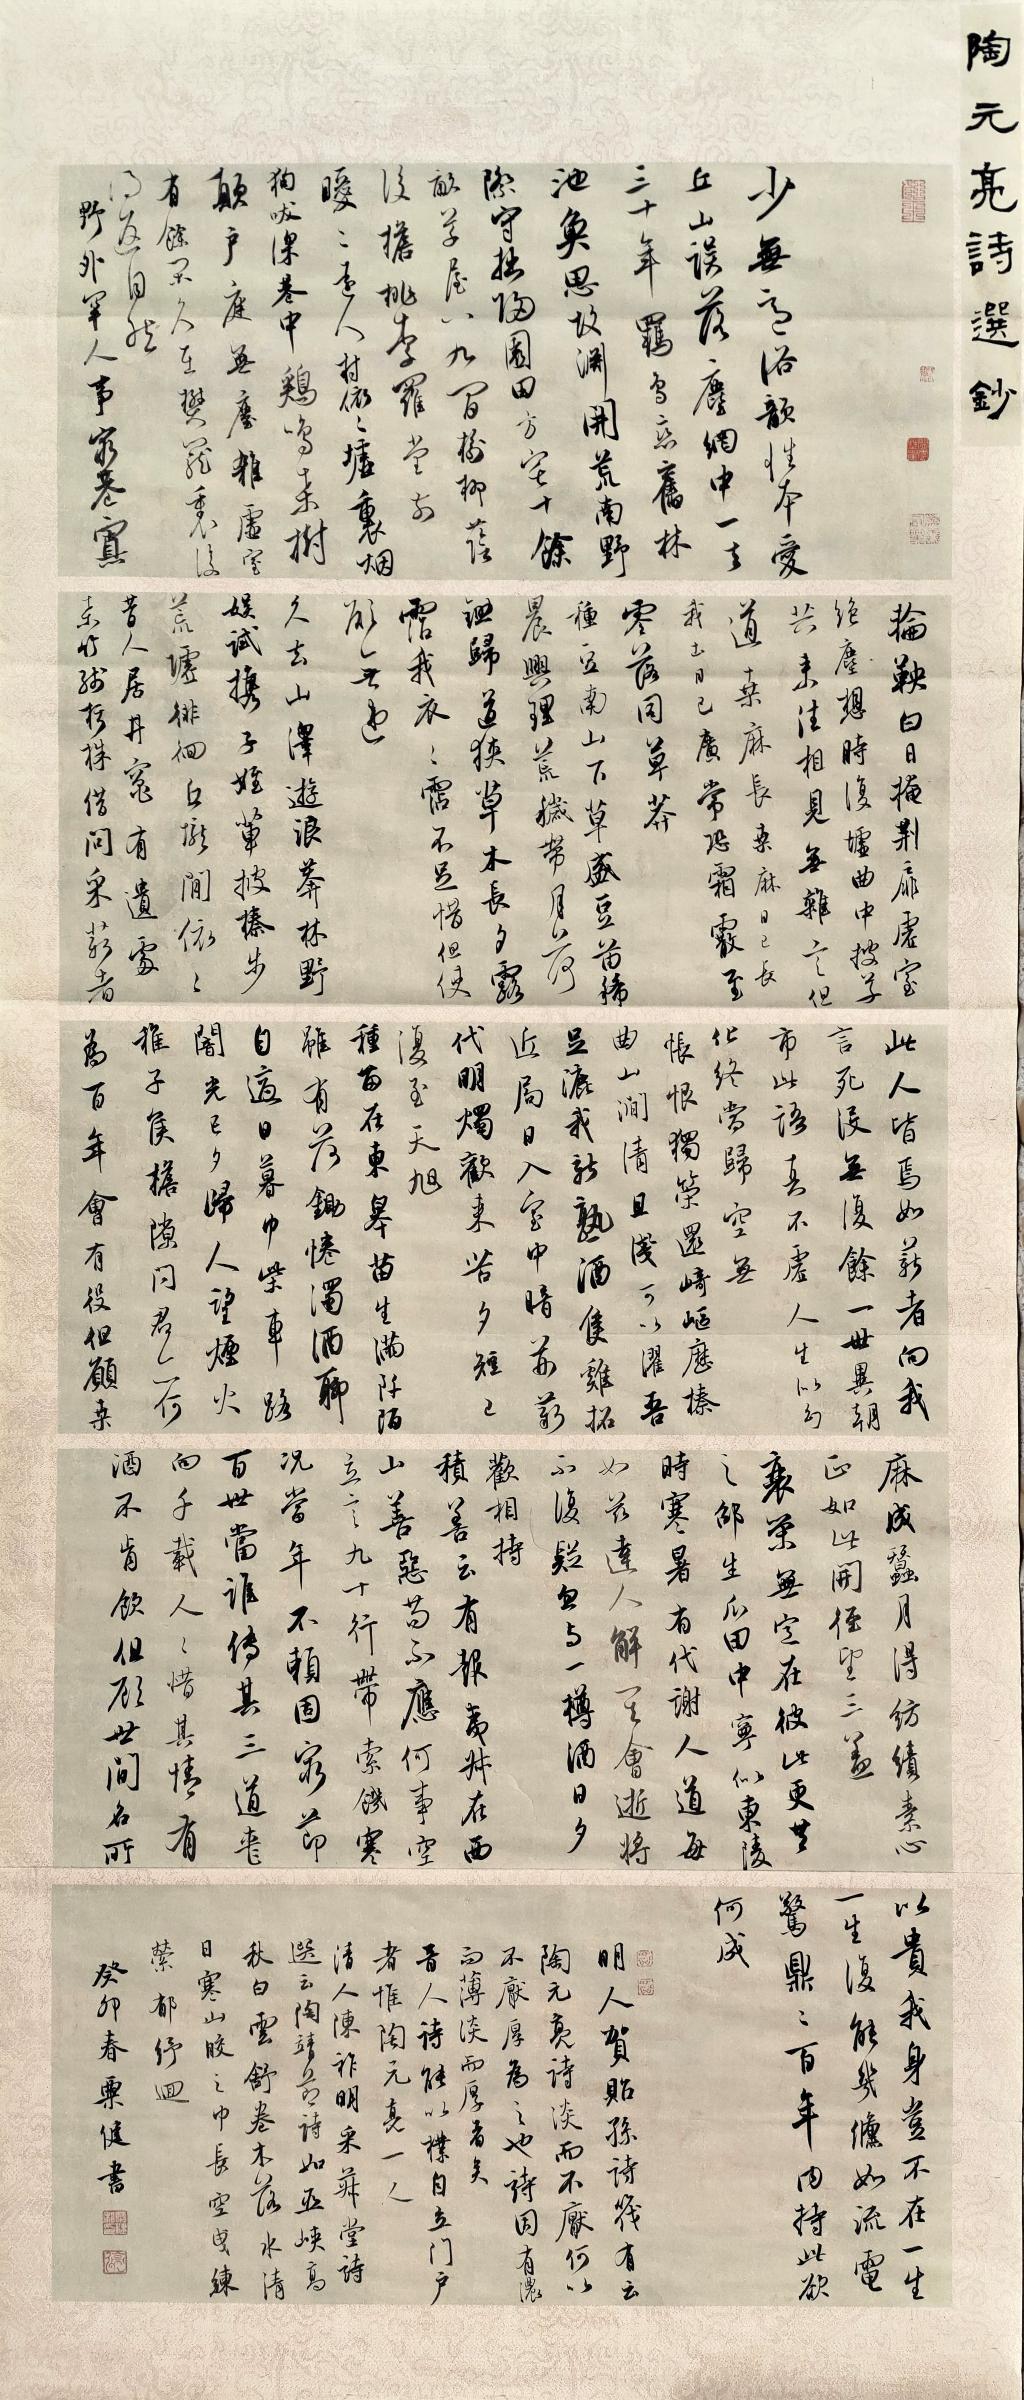 陶元亮詩選鈔
少無適俗韻性本愛
丘山誤落塵網中一去
三十年羈鳥戀舊林
池魚思故淵開荒南野
際守拙歸園田方宅十餘
畝草屋八九間榆柳蔭
後檐桃李羅堂前
曖〻遠人村依〻墟裏烟
狗吠深巷中鷄鳴桑樹
顛戶庭無塵雜虛室
有餘閑久在樊籠裏復
得返自然
野外罕人事窮巷寡
輪鞅白日掩荆扉虛室
絕塵想時復墟曲中披草
共來往相見無雜言但
道桑麻長桑麻日已長
我土日已廣常恐霜霰至
零落同草莽
種豆南山下草盛豆苗稀
晨興理荒穢帶月荷
鋤歸道狹草木長夕露
霑我衣〻霑不足惜但使
願無違
久去山澤遊浪莽林野
娛試攜子姪輩披榛步
荒墟徘徊丘壠間依〻
昔人居井竈有遺處
桑竹殘朽株借問采薪者
此人皆焉如薪者向我
言死沒無復餘一世異朝
市此語真不虛人生似幻
化終當歸空無
悵恨獨策還崎嶇歷榛
曲山澗清且淺可以濯吾
足漉我新熟酒隻雞招
近局日入室中暗荊薪
代明燭歡來苦夕短已
復至天旭
種苗在東皋苗生滿阡陌
雖有荷鋤倦濁酒聊
自適日暮巾柴車路
闇光已夕歸人望煙火
稚子候檐隙問君亦何
為百年會有役但願桑
麻成蠶月得紡績素心
正如此開徑望三益
衰榮無定在彼此更共
之邵生瓜田中寧似東陵
時寒暑有代謝人道每
如茲達人解其會逝將
不復疑忽與一樽酒日夕
歡相持
積善云有報夷叔在西
山善惡苟不應何事空
立言九十行帶索飢寒
況當年不賴固窮節
百世當誰傳其三道喪
向千載人〻惜其情有
酒不肯飲但顧世間名所
以貴我身豈不在一生
一生復能幾倏如流電
驚鼎〻百年內持此欲
何成
明人賀貽孫詩筏有云
陶元亮詩淡而不厭何以
不厭厚為之也詩固有濃
而薄淡而厚者矣
晋人詩能以樸自立门户
者惟陶元亮一人
清人陳祚明采菽堂詩
選云陶靖節詩如巫峽高
秋白雲舒卷木落水清
日寒山皎之中長空曳練
縈郁紆迴
癸卯春粟健書